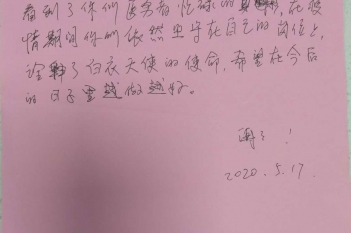 看到了你们医务者忙碌的身影,在疫
情期间你们依然坚守在自己的岗位上,
诠释了白衣天使的使命,希望在今后
的日子里越做越好。
谢了!
2020.5.17.